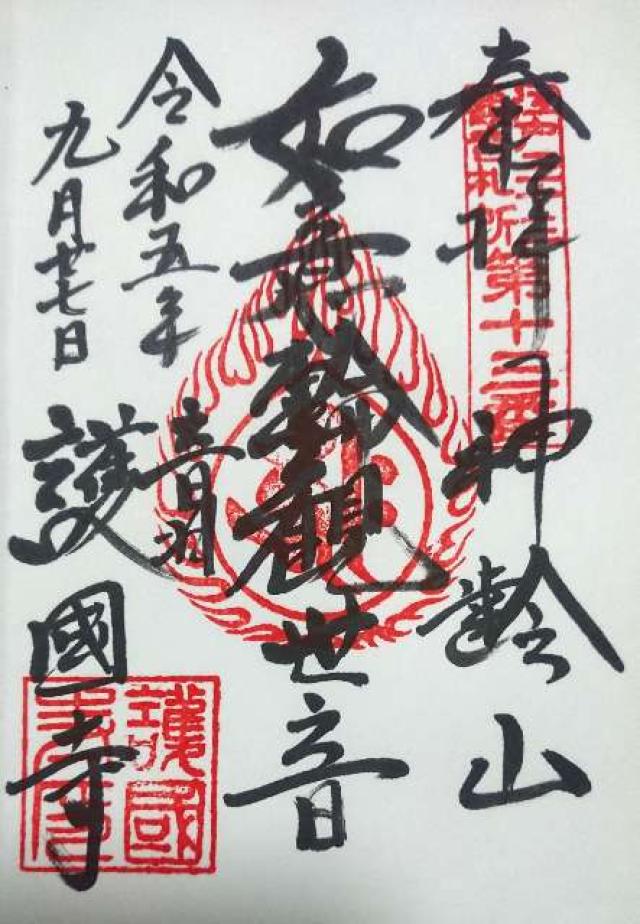 奉拝
神齢山
第十三番
如意輪観世音
令和五年
九月廿七日
音羽
護國寺
護國